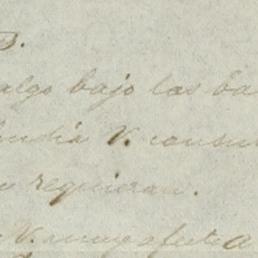 algo bajo las ba
V. consu
requieran.
V. muy afect